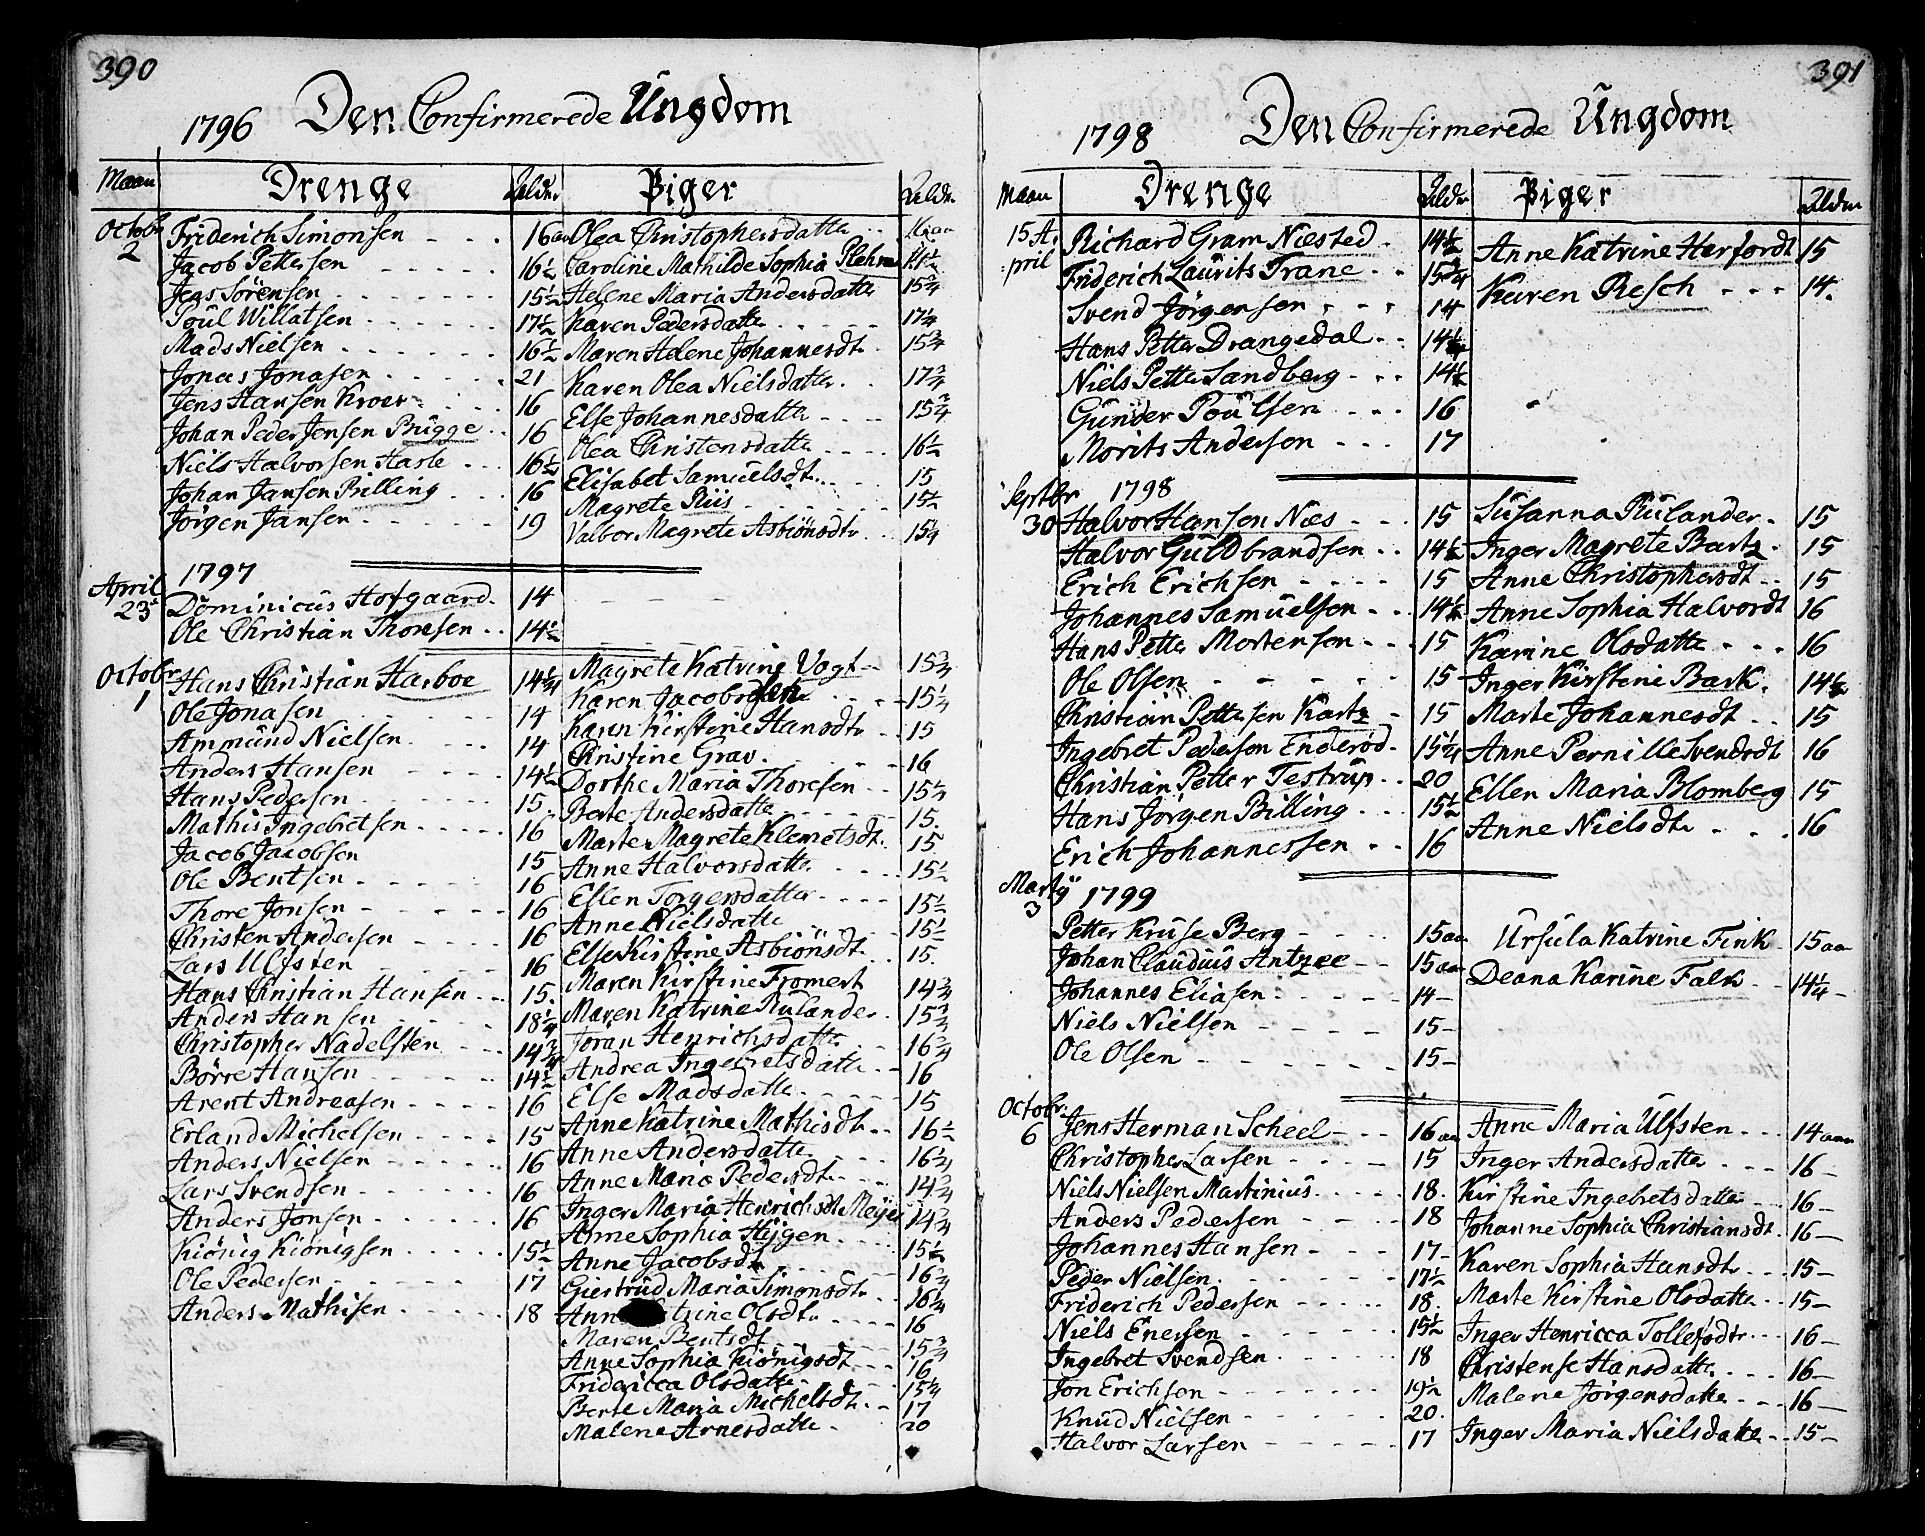 390
1796 Den Confirmerede Ungdom
Maan Drenge Aldr. Piger Aldr.
Octobr 2
Friderich Simonsen 16 aar
Jacob Pettersen 16½
Jens Sörensen 15½
Poul Willatsen 17½
Mads Nielsen 16½
Jonas Jonasen 21
Jens Hansen Kroer 16
Johan Peder Jensen Brügge 16
Niels Halvorsen Hasle 16½
Johan Jansen Prilling 16
Jörgen Jansen 19
Olea Christophersdatte
Caroline Mathilde Sophia
Helene Maria Andersdatte 15¾
Karen Pedersdatte 17¼
Maren Helene Johannesdt. 15¾
Karen Olea Nielsdatter 17¾
Else Johannesdatte 15¾
Olea Christensdatte 16½
Elisabet Samuelsdt. 15
Magrete Riis 15½
Valbor Magrete Asbiönsdtr 15¼
1797
April 23
Dominicus Hofgaard 14
Ole Christian Thoresen 14½
Octobr 1
Hans Christian Harboe 14¾
Ole Jonasen 14
Ammund Nielsen 14
Anders Hansen 14½
Hans Pedersen 15
Mathis Ingebretsen 16
Jacob Jacobsen 15
Ole Bentsen 16
Thore Jonsen 16
Christen Andersen 16
Lars Ulfsten 16
Hans Christian Hansen 15
Anders Hansen 18¼
Christopher Nadelsten 14¾
Börre Hansen 14½
Arent Andreasen 16
Erland Michelsen 15
Anders Nielsen 16
Lars Svendsen 16
Anders Jonsen 16
Kiönig Kiönigsen 15½
Ole Pedersen 17
Anders Mathisen 18
Magrete Katrine Vogt 15¾
Karen Jacobsdatte 15¼
Karen Kirstine Hansdtr 15
Christine Grav 16
Dorthe Maria Thoresen 15¼
Berte Andersdatte 15
Marte Magrete Klemetsdt. 15
Anne Halvorsdatte 15½
Ellen Torgersdatter 15½
Anne Nielsdatte 15½
Else Kirstine Asbiönsdt. 15
Maren Kirstine Fromert 14¾
Maren Katrine Rulander 15¾
Joran Henrichsdatte 16¾
Andrea Ingebretsdatte 16
Else Madsdatte 15
Anne Katrine Mathisdt. 16½
Anne Andersdatte 16¼
Anne Maria Pedersdt. 14¾
Inger Maria Henrichsdt Meyer 14¾
Anne Sophia Hÿgen 15½
Anne Jacobsdt 16¾
Giertrud Maria Simonsdtr 16¼
Anne Olsdtr 16
Maren Bentsdt. 15¾
Anne Sophia Kiönigsdt. 16
Fridericca Olsdatte 15¼
Berte Maria Michelsdt. 17
Malene Arnesdatte 20
391
1798 Den Confirmerede Ungdom
Maan Drenge Aldr Piger Aldr
15 April
Richard Gram Næsted 14½
Friderich Laurits Trane 15¾
Svend Jörgensen 14
Hans Petter Drangedal 14½
Niels Petter Sandberg 14½
Gunder Poulsen 16
Morits Andersen 17
Anne Katrine Herfordt 15
Karen Resch 14
Septbr 30 1798
Halvor Hansen Næs 15
Halvor Guldbrandsen 14½
Erich Erichsen 15
Johannes Samuelsen 14½
Hans Petter Mortensen 15
Ole Olsen 15
Christian Pettersen Kartz 15
Ingebret Pedersen Enderöd 15¼
Christian Petter Testrup 20
Hans Jörgen Billing 15½
Erich Johannessen 16
Susanna Rulander 15
Inger Magrete Bartz 15
Anne Christophersdt. 15
Anne Sophia Halvordt 16
Karine Olsdatte 16
Inger Kirstine Bark 14½
Marte Johannesdt 15
Anne Pernille Svendsdt 16
Ellen Maria Blomberg 15
Anne Nielsdtr 16
Martÿ 3 1799
Petter Kruse Berg 15 aar
Johan Claudius Antzee 15 aar
Johannes Eliasen 14
Niels Nielsen 15
Ole Olsen 15
Ursula Katrine Fink 15 aar
Deana Karine Falk 14¼
Octobr. 6
Jens Herman Scheel 16 aar
Christopher Larsen 15
Niels Nielsen Martinius 18
Anders Pedersen 18
Johannes Hansen 17
Peder Nielsen 17½
Friderich Pedersen 18
Niels Enersen 15½
Ingebret Svendsen 18
Jon Erichsen 19½
Knud Nielsen 20
Halvor Larsen 17
Anne Maria Ulfsten 14 aar
Inger Andersdatter 16
Kirstine Ingebretsdatte 16
Johanne Sophia Christiansdt. 16
Karen Sophia Hansdtr 15
Marte Kirstine Olsdatte 15
Inger Henricca Tollefsdtr 16
Christense Hansdatte 16
Malene Jörgensdatte 16
Inger Maria Nielsdatte 15